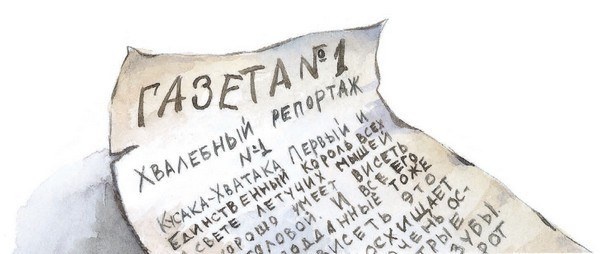 ГАЗЕТА №1
ХВАЛЕБНЫЙ РЕПОРТАЖ
№1
КУСАКА-ХВАТАКА ПЕРВЫЙ И
ЕДИНСТВЕННЫЙ КОРОЛЬ ВСЕХ
СВЕТЕ ЛЕТУЧИХ МЫШЕЙ
ХОРОШО УМЕЕТ ВИСЕТЬ
ГОЛОВОЙ. И ВСЕ ЕГО
ПОДДАННЫЕ ТОЖЕ
ВИСЕТЬ ЭТО
ОСХИЩАЕТ
ОЧЕНЬ ОС-
ТРЫЕ ЗУБЫ.
РОТ